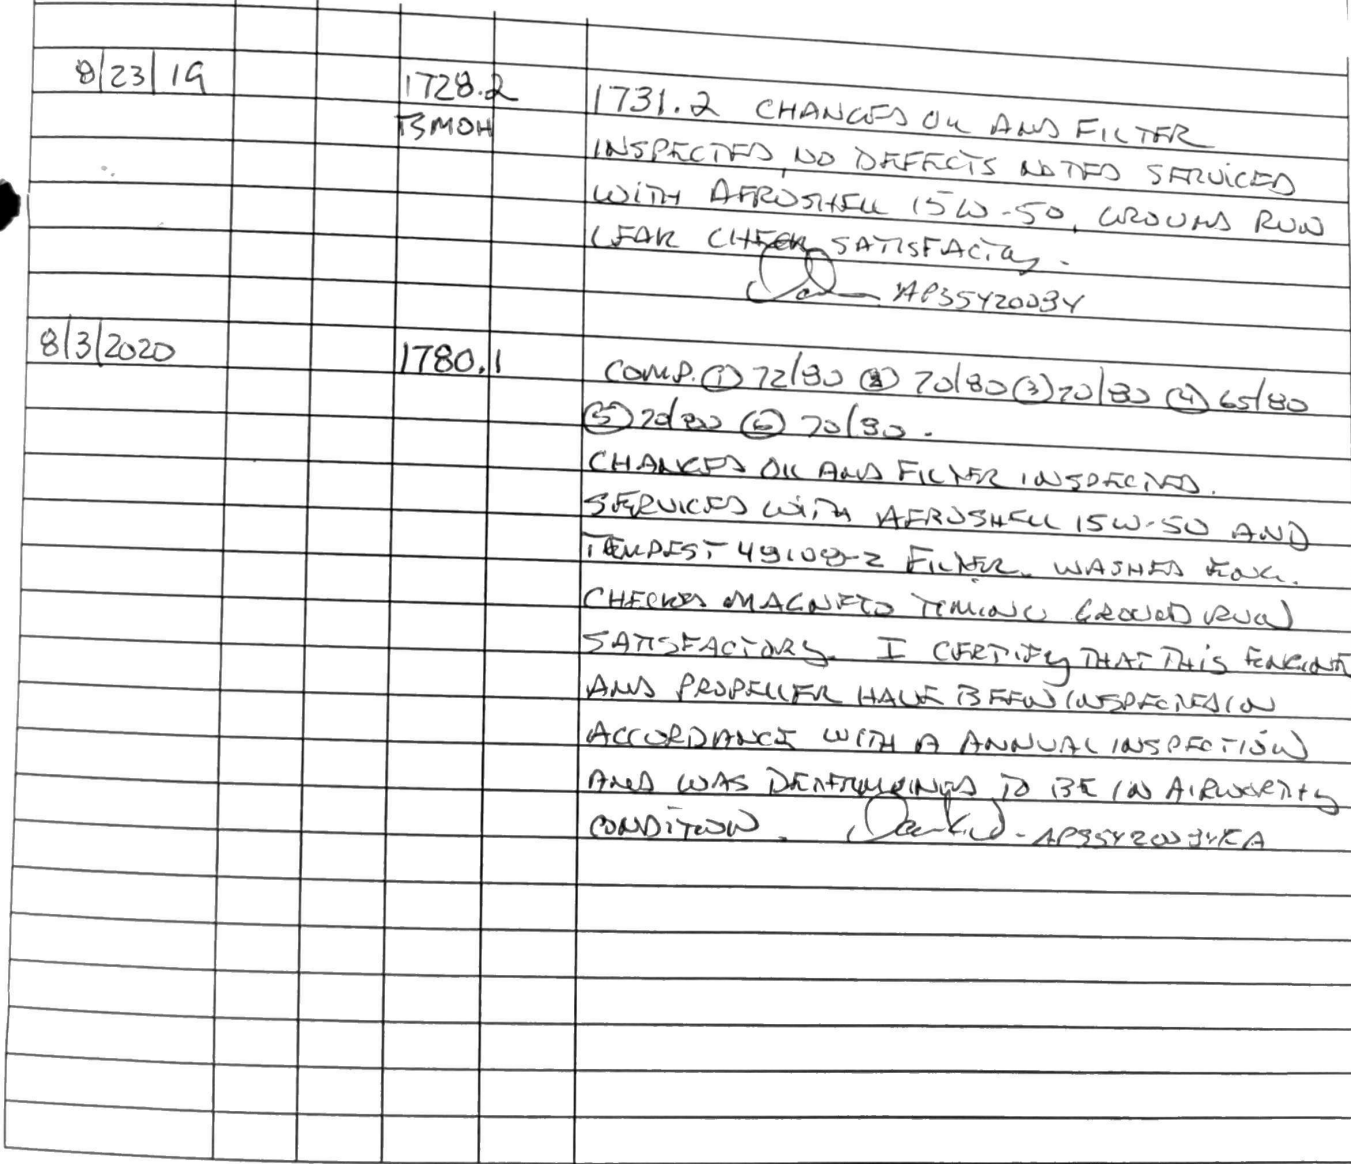 8/23/19 1728.2 1731.2 CHANGED OIL AND FILTER
TSMOH INSPECTED, NO DEFECTS NOTED SERVICED
WITH AEROSHELL 15W-50, GROUND RUN
LEAK CHECK SATISFACTORY.
AP3542009
8/3/2020 1780.1 COMP. (1) 72/80 (2) 70/80 (3) 70/80 (4) 65/80
(5) 70/80 (6) 70/80.
CHANGED OIL AND FILTER INSPECTED.
SERVICED WITH AEROSHELL 15W-50 AND
TEMPEST 48108-2 FILTER. WASHED ENG.
CHECKED MAGNETO TIMING GROUND RUN
SATISFACTORY. I CERTIFY THAT THIS ENGINE
AND PROPELLER HAVE BEEN INSPECTED IN
ACCORDANCE WITH A ANNUAL INSPECTION
AND WAS DETERMINED TO BE IN AIRWORTHY
CONDITION.